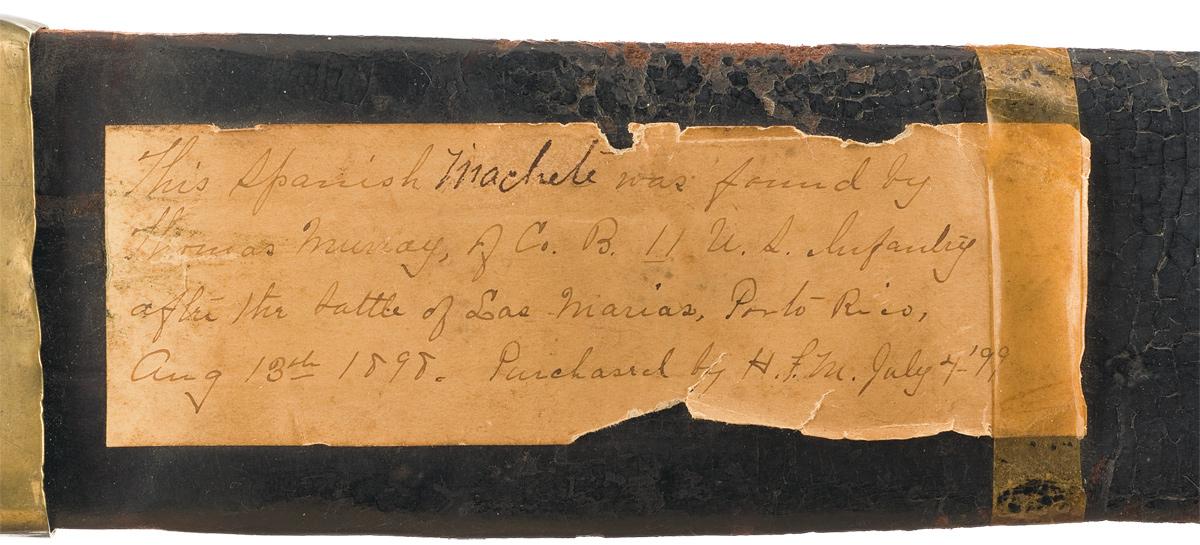 This Spanish Machete was found by
Thomas Murray, of Co. B. 11 U. S. Infantry
after the battle of Las Marias, Porto Rico,
Aug 13th 1898. Purchased by H. F. M. July 4-'99